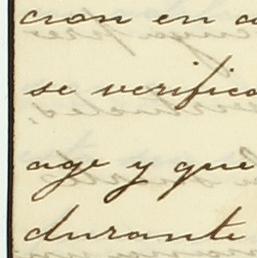 cion en a
se verifica
age y que
durante